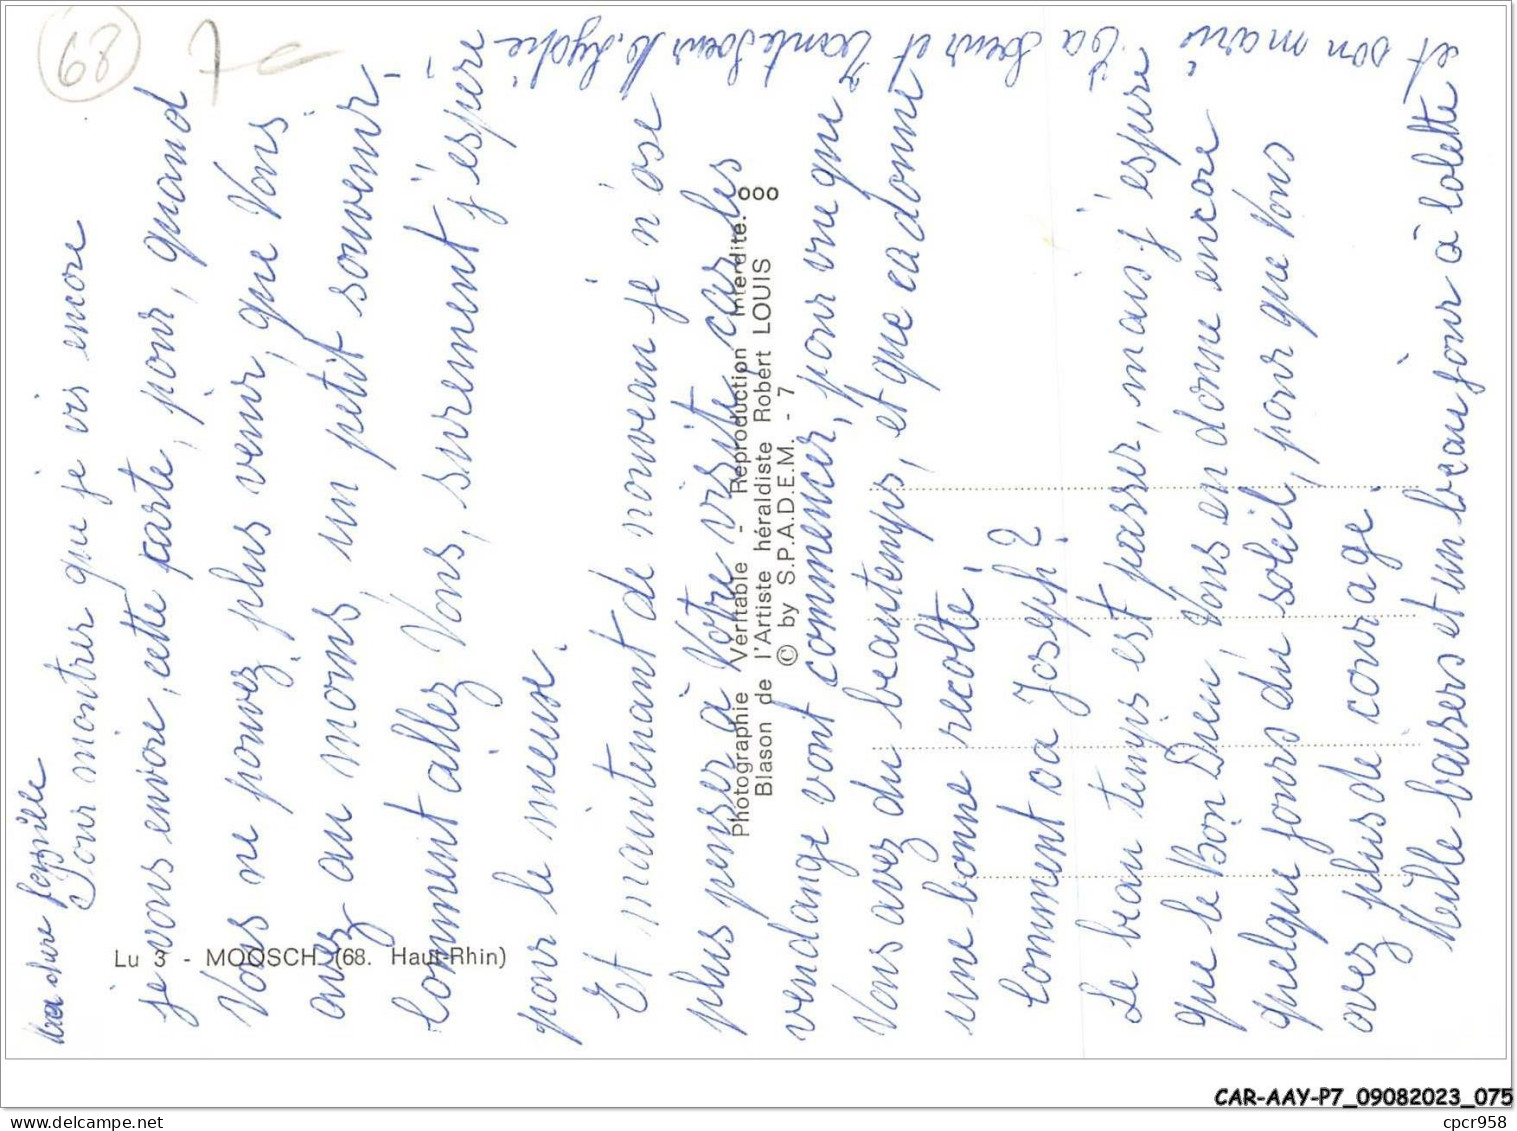 68
7
Ma chère famille
Pour montrer que je vis encore
je vous envoie, cette carte, pour, quand
Vous ne pouvez, plus venir, que Vous
avez au moins, un petit souvenir
Comment allez Vous, surement j'espère
pour le mieux.
Et maintenant de nouveau je n'ose
plus penser à Votre visite, car les
vendange vont commencer, pour vue que
Vous avez du beautemps, et que ca donne
une bonne recolte.
Comment va Joseph?
Le beau temps est passer, mais j'espère
que le Bon Dieu, Vous en donne encore
quelque jours du soleil, pour que Vous
avez plus de courage.
Mille baisers et un beaujour à lolette
et son mari Ta Soeur et Tante Soeur M.
Lu 3 - MOOSCH (68. Haut-Rhin)
Photographie Véritable - Reproduction Interdite. 000
Blason de l'Artiste héraldiste Robert LOUIS
© by S.P.A.D.E.M. - 7
CAR-AAY-P7_09082023_075
https://www.delcampe.net
cpcr958